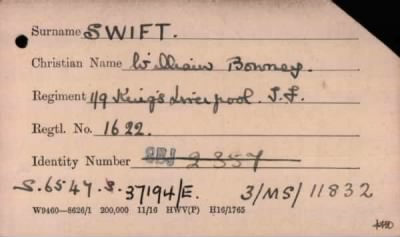 Surname SWIFT.
Christian Name William Bonney.
Regiment 1/9 King's Liverpool. T.F.
Regtl. No. 1622.
Identity Number 2357
S.6547.S. 37194/E. 3/MS/11832
W9460—8626/1 200,000 11/16 HWV(P) H16/1765